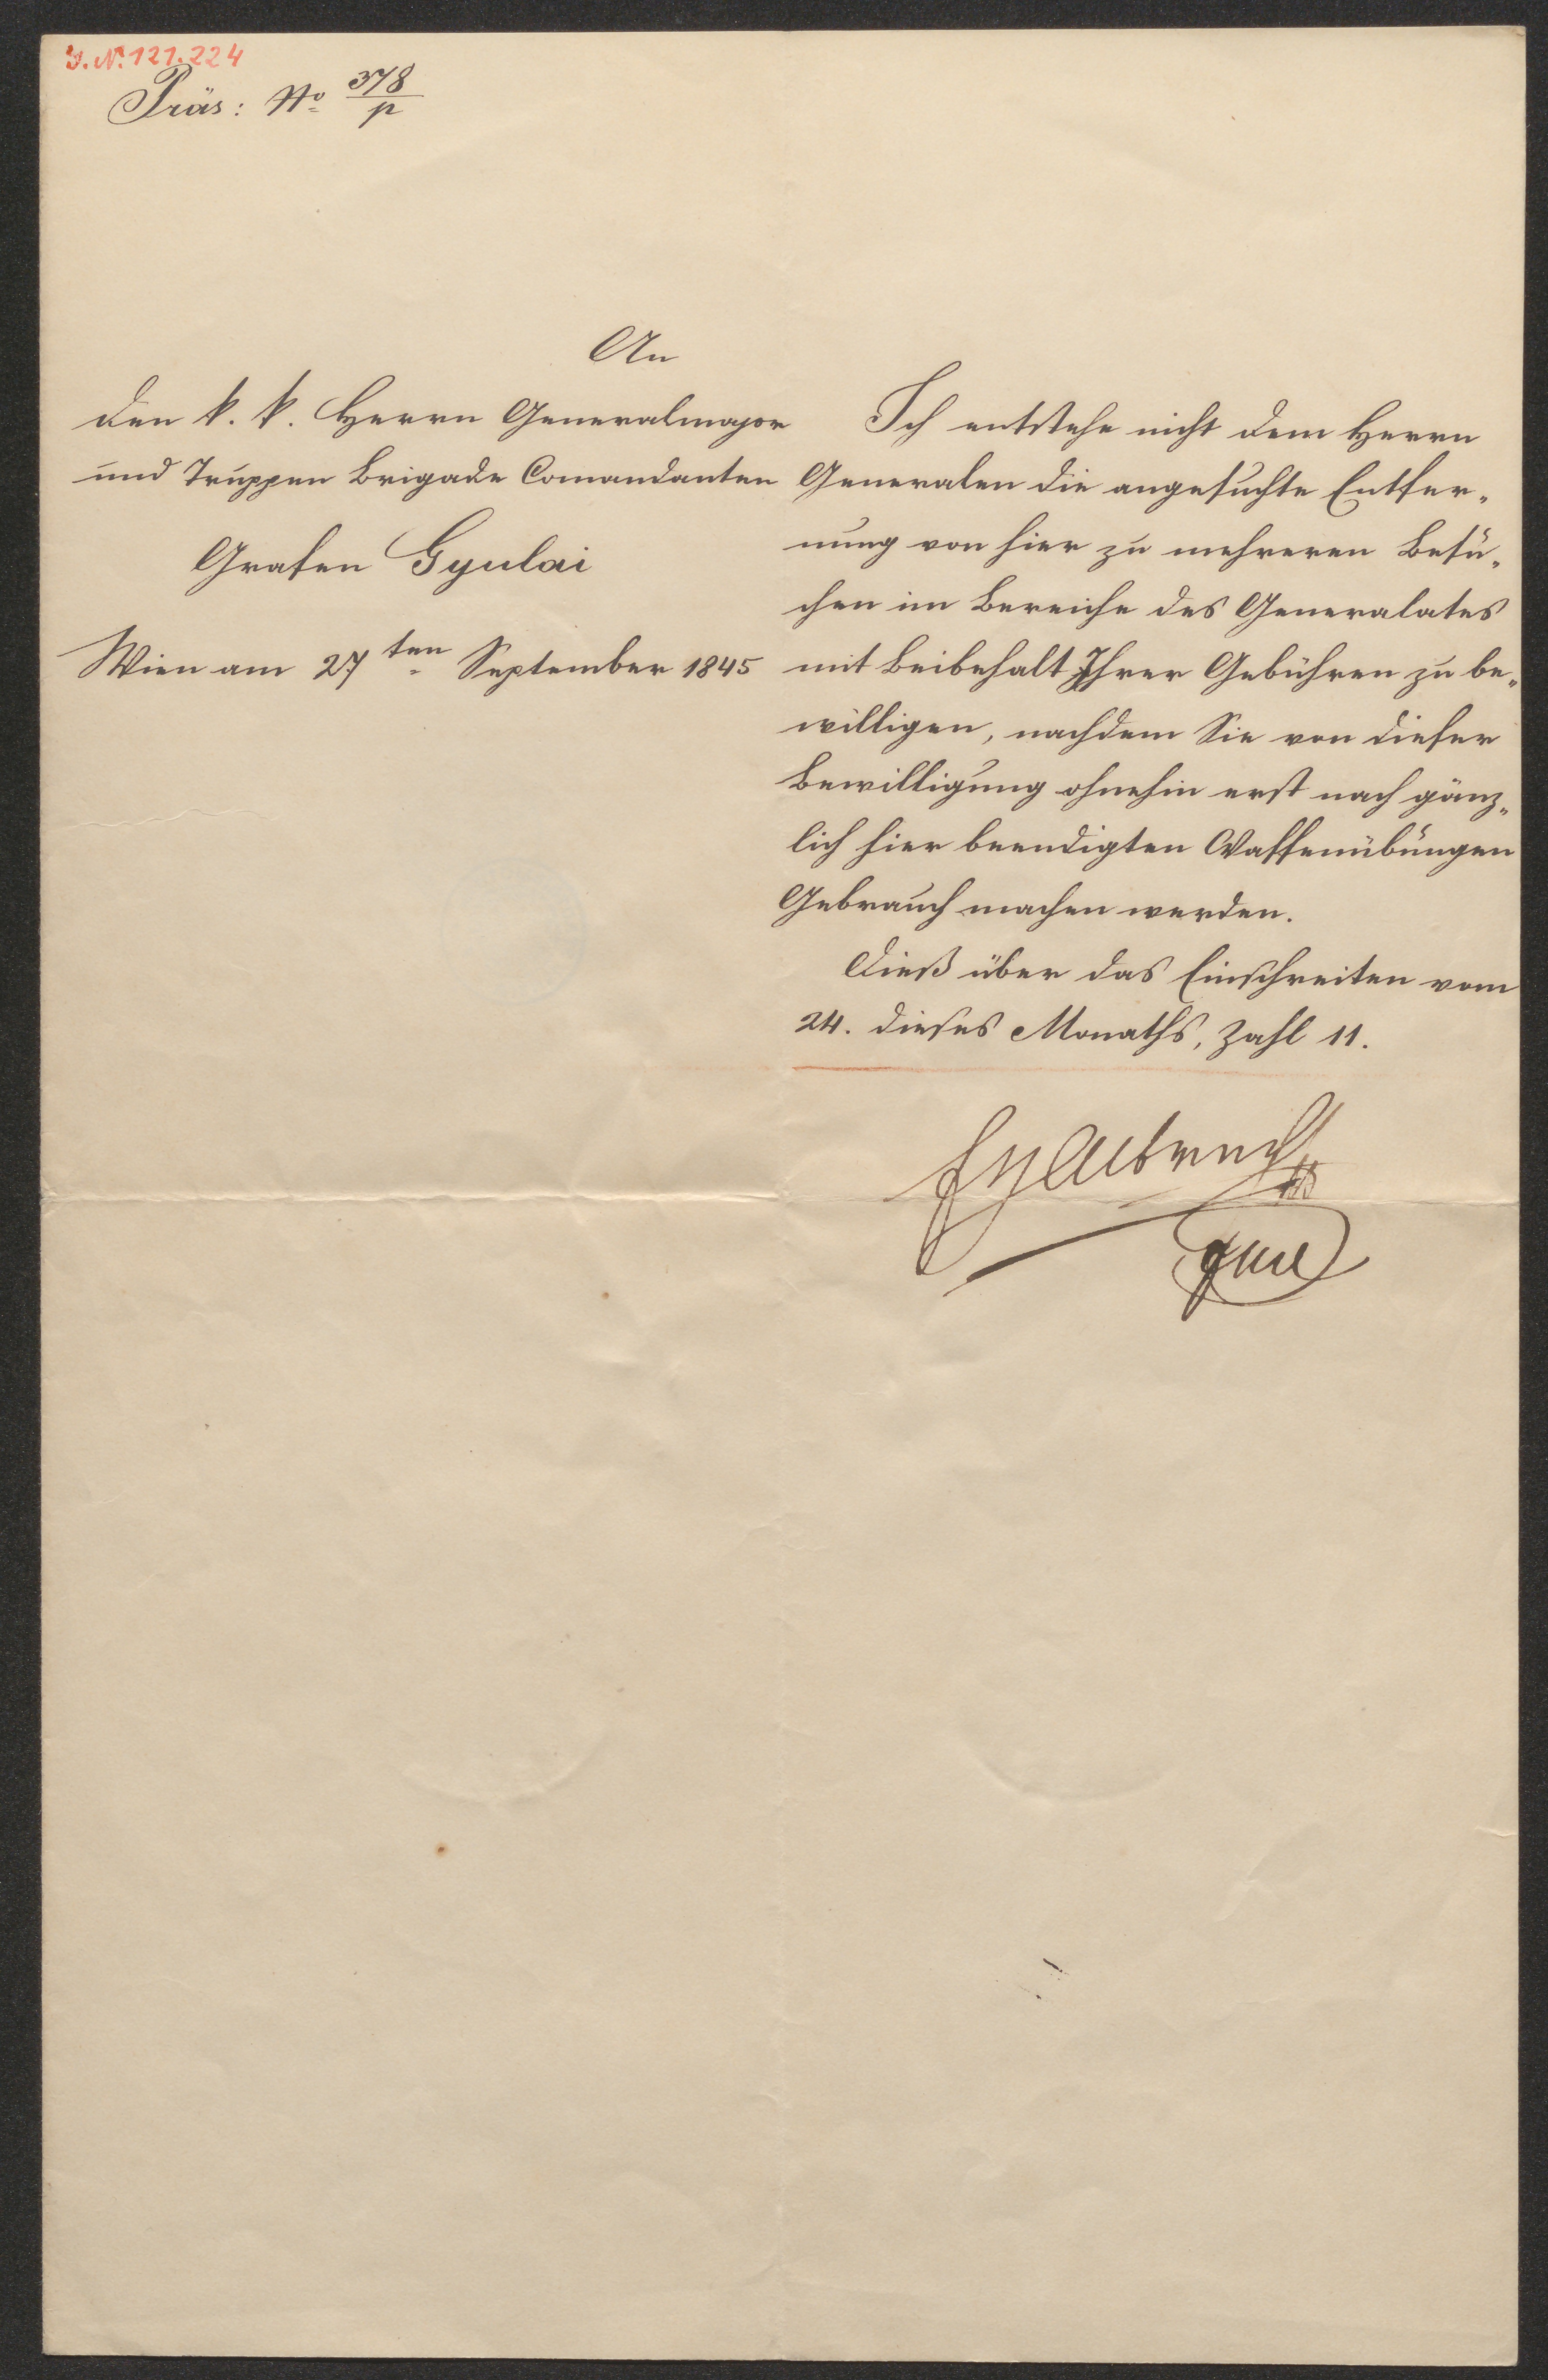 I. N. 121.224
Präs: No 378/p
An
den k. k. Herrn Generalmajor
und Truppen Brigade Comandanten
Grafen Gyulai
Wien am 27ten September 1845
Ich entstehe nicht dem Herrn
Generalen die angesuchte Entfer„
nung von hier zu mehreren Besu„
chen im Bereiche des Generalates
mit Beibehalt Ihrer Gebühren zu be„
willigen, nachdem Sie von dieser
Bewilligung ohnehin erst nach gänz„
lich hier beendigten Waffenübungen
Gebrauch machen werden.
Dieß über das Einschreiten vom
24. dieses Monaths, Zahl 11.
EHAlbrecht